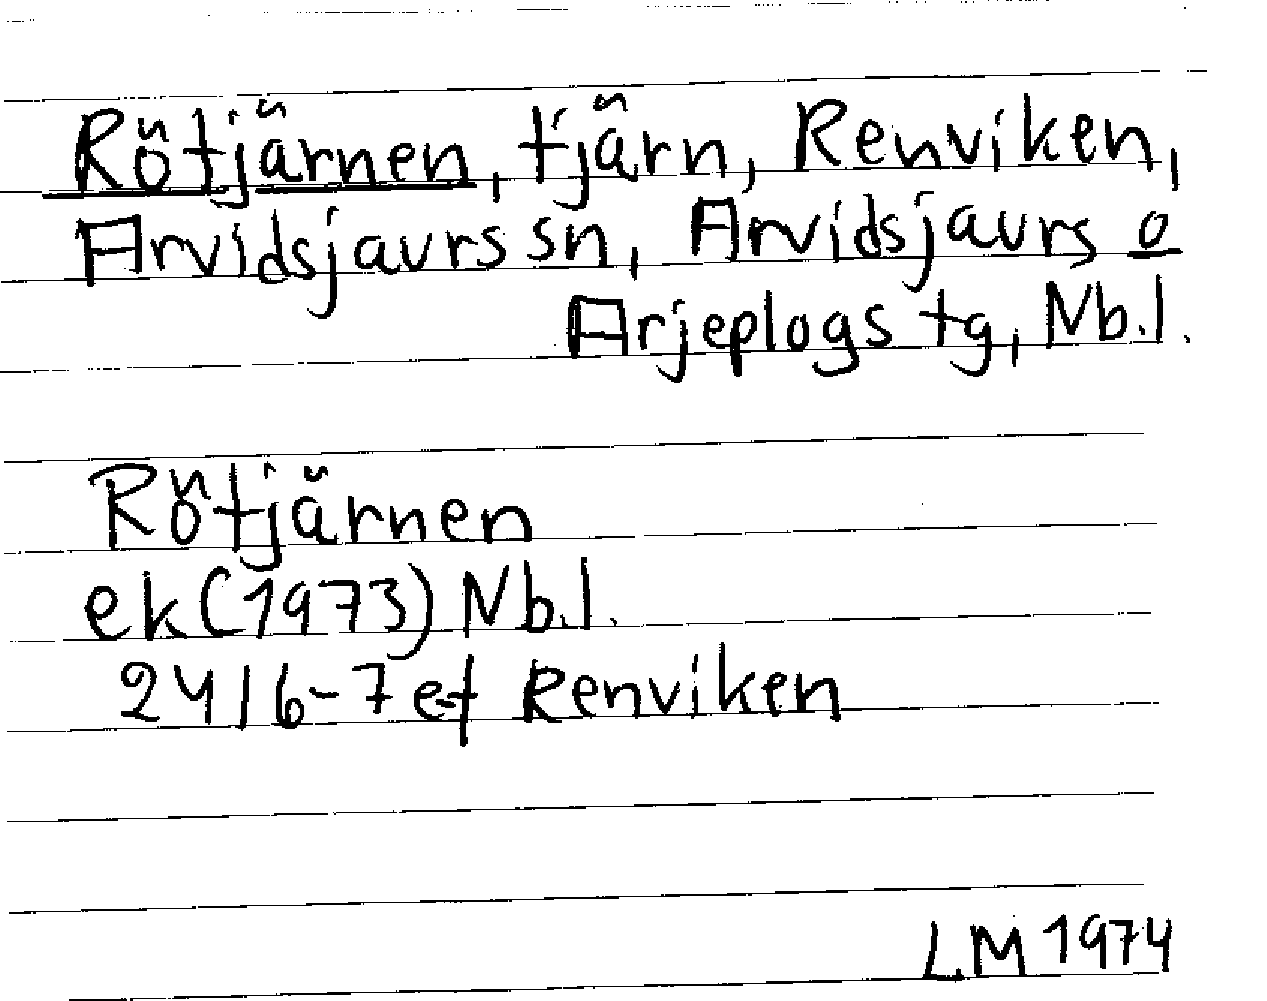 Rötjärnen, tjärn, Renviken,
Arvidsjaurs sn, Arvidsjaurs o
Arjeplogs tg, Nb.l.
Rötjärnen
ek (1973) Nb.l.
24 I 6-7 e-f Renviken
LM 1974